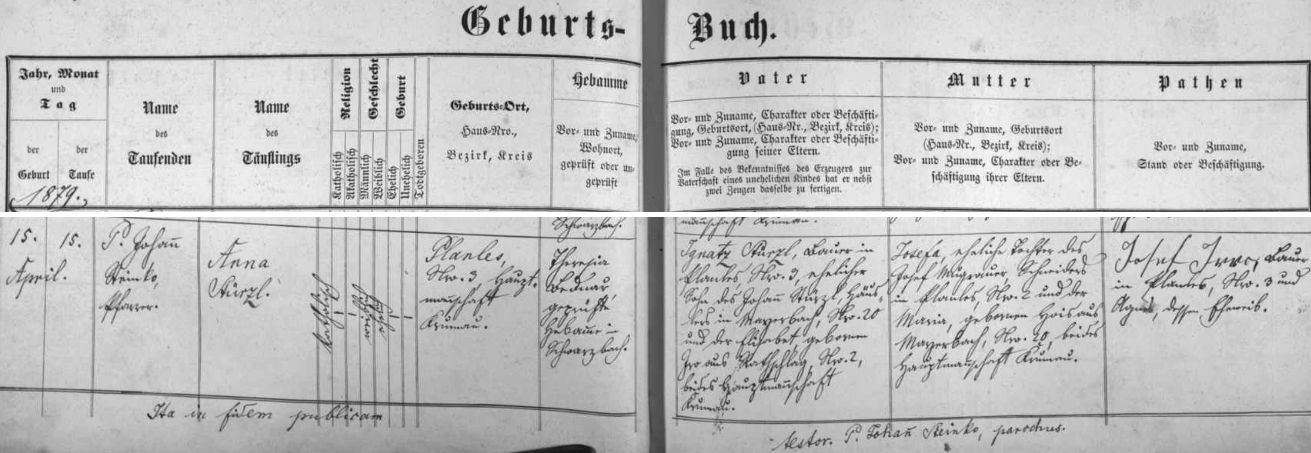 Geburts- Buch.
Jahr, Monat
und
Tag
der
Geburt
der
Taufe
1879.
Name
des
Taufenden
Name
des
Täuflings
Religion
Katholisch
Akatholisch
Geschlecht
Männlich
Weiblich
Geburt
Ehelich
Unehelich
Todtgeboren
Geburts-Ort,
Haus-Nro.,
Bezirk, Kreis
Hebamme
Vor- und Zuname,
Wohnort,
geprüft oder un-
geprüft
Vater
Vor- und Zuname, Charakter oder Beschäfti-
gung, Geburtsort, (Haus-Nr., Bezirk, Kreis);
Vor- und Zuname, Charakter oder Beschäfti-
gung seiner Eltern.
Im Falle des Bekenntnisses des Erzeugers zur
Vaterschaft eines unehelichen Kindes hat er nebst
zwei Zeugen dasselbe zu fertigen.
Mutter
Vor- und Zuname, Geburtsort
(Haus-Nr., Bezirk, Kreis);
Vor- und Zuname, Charakter oder Be-
schäftigung ihrer Eltern.
Pathen
Vor- und Zuname,
Stand oder Beschäftigung.
15. 15.
April.
P. Johañ
Steinko,
Pfarrer.
Anna
Stürzl.
katholisch
weiblich
ehelich
Plantes,
Nro. 3, Haupt-
mañschaft
Krumau.
Schwarzbach.
Theresia
Bednar
geprüfte
Hebam̃e in
Schwarzbach.
mañschaft Krumau.
Ignatz Stürzl, Bauer in
Plantes Nro. 3, ehelicher
Sohn des Johañ Stürzl, Häus-
lers in Mayerbach, Nro. 20
und der Elisabet, geborenen
Iro aus Rathschlag, Nro. 2,
beides Hauptmañschaft
Krumau.
Josefa, eheliche Tochter des
Josef Mugrauer, Schneiders
in Plantes, Nro. 2 und der
Maria, geborenen Hois aus
Mayerbach, Nro. 20, beides
Hauptmañschaft Krumau.
Josef Irro, Bauer
in Plantes, Nro. 3 und
Agnes, dessen Eheweib.
Ita in fidem publicam
testor. P. Johañ Steinko, parochus.